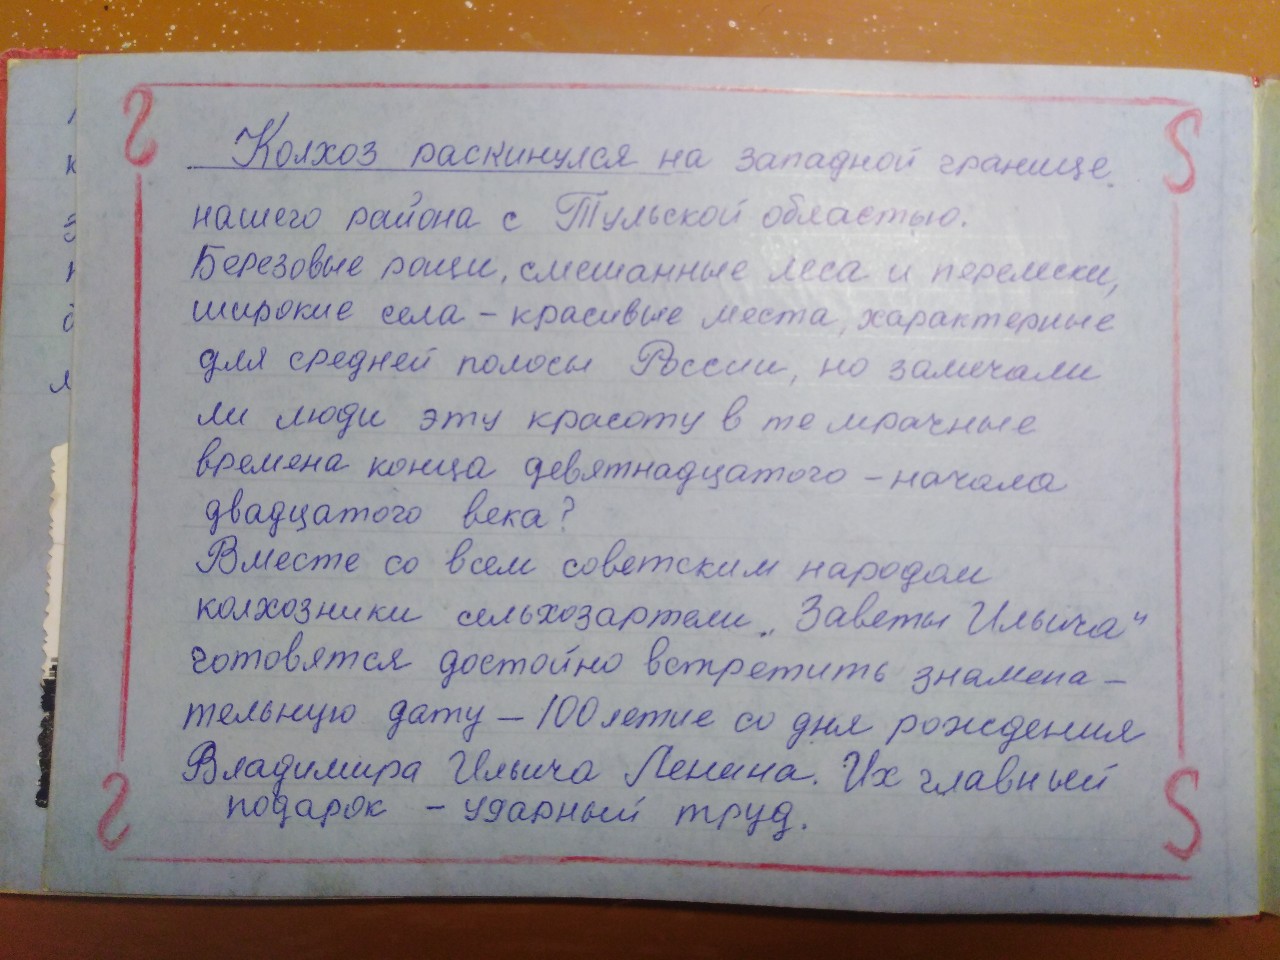 Колхоз раскинулся на западной границе
нашего района с Тульской областью.
Березовые рощи, смешанные леса и перелески,
широкие села - красивые места, характерные
для средней полосы России, но замечали
ли люди эту красоту в те мрачные
времена конца девятнадцатого - начала
двадцатого века?
Вместе со всем советским народом
колхозники сельхозартели „Заветы Ильича"
готовятся достойно встретить знамена-
тельную дату - 100летие со дня рождения
Владимира Ильича Ленина. Их главный
подарок - ударный труд.